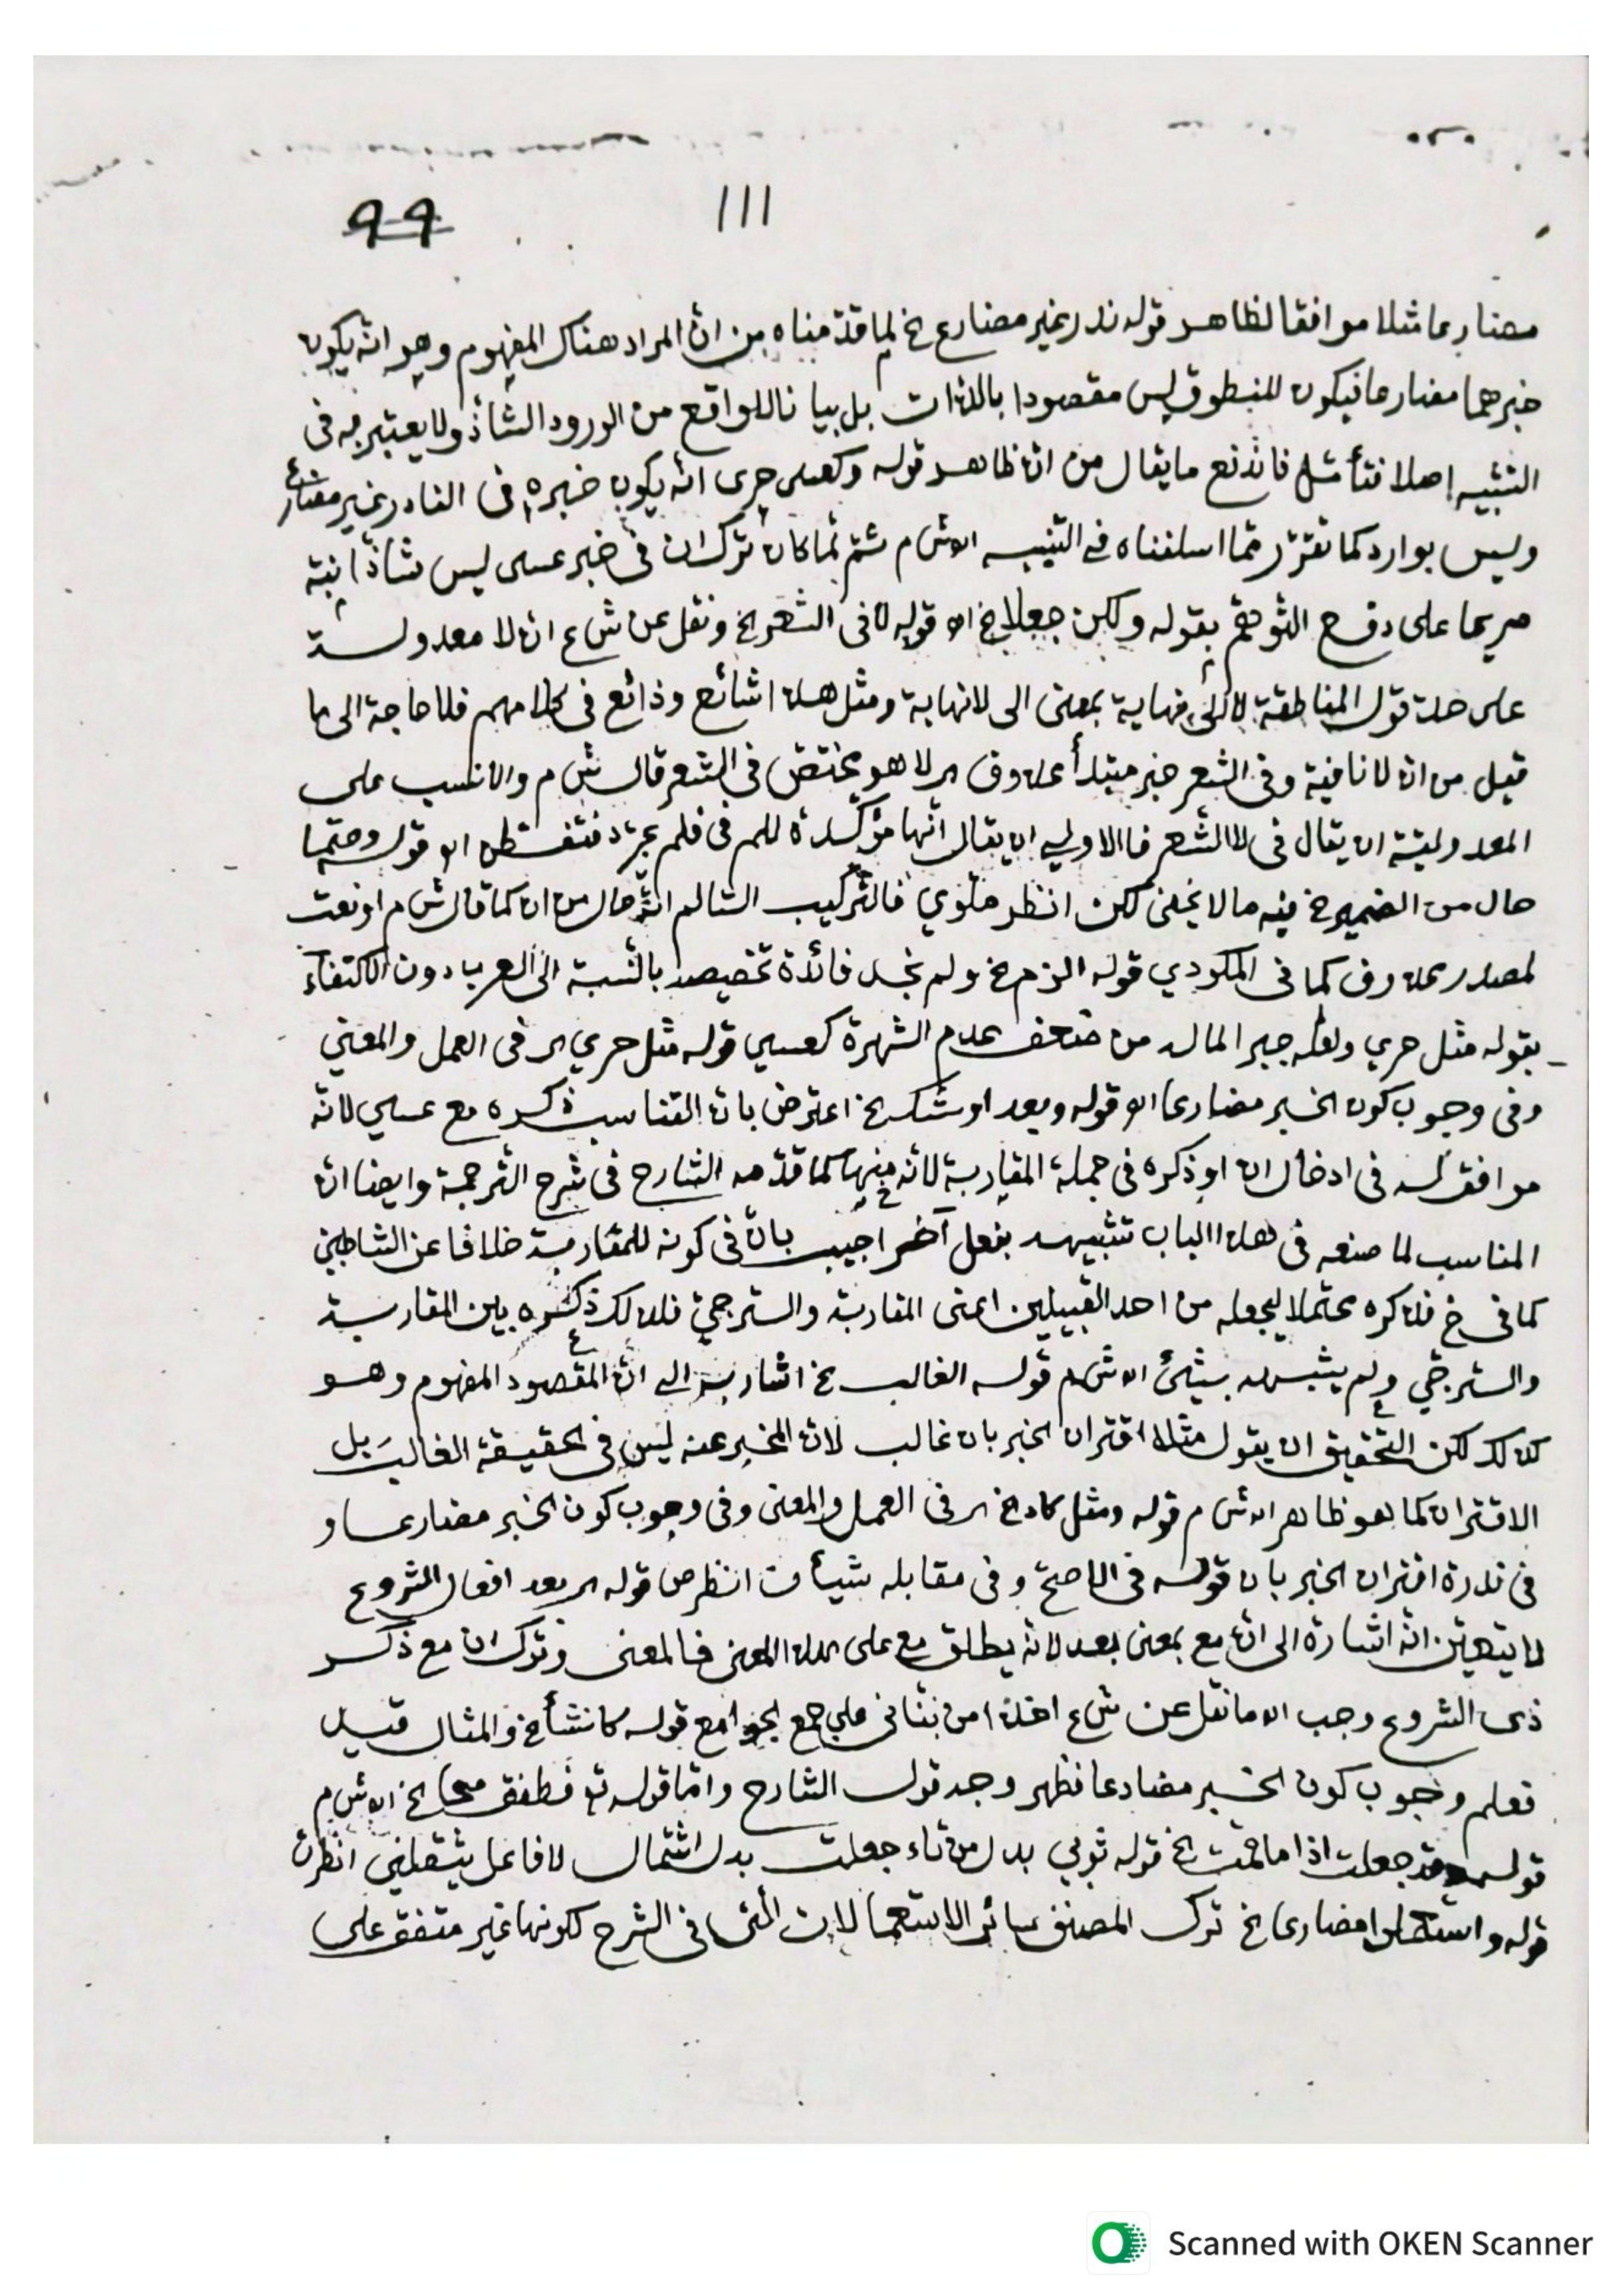 ١١١ ٩٩
مضارعا مثلا موافقا لظاهر قوله ندر غير مضارع خ لما قدّمناه من انّ المراد هناك المفهوم وهو انّه يكون
خبرهما مضارعا فيكون المنطوق ليس مقصودا بالذات بل بيانا للواقع من الورود الشاذّ ولا يعتبر به فى
التشبيه اصلا فتأمّل فاندفع ما يقال من انّ ظاهر قوله وكعسى حرى انّه يكون خبره فى النادر غير مضارع
وليس بوارد كما تقرّر ممّا اسلفناه فى التنبيه اه ش م ثمّ لمّا كان ترك ان فى خبر عسى ليس شاذّا نبّه
صريحا على دفع التوهّم بقوله ولكن جعلا خ اه قوله لا فى الشعر خ ونقل عن ش ع ان لا معدولة
على حدّ قول المناطقة لا الى نهاية بمعنى الى لا نهاية ومثل هذا شائع وذائع فى كلامهم فلا حاجة الى ما
قيل من ان لا نافية وفى الشعر خبر مبتدأ محذوف اى لا هو مختصّ فى الشعر قال ش م والانسب على
المعدوليّة ان يقال فى لا الشعر فالاولى ان يقال انّها مؤكّدة للم فى فلم يجرّد فتفطن اه قوله وحتما
حال من الضمير خ فيه ما لا يخفى لكن انظر ملّوي فالتركيب السالم انّه حال من ان كما قال ش م او نعت
لمصدر محذوف كما فى المكودي قوله الزم خ ولم نجد فائدة تخصيصه بالنسبة الى العرب دون الاكتفاء
بقوله مثل حري ولعلّه جبر الماله من ضعف عدم الشهرة كعسي قوله مثل حري اى فى العمل والمعني
وفى وجوب كون الخبر مضارعا اه قوله وبعد اوشك خ اعترض بانّ التناسب ذكره مع عسي لانّه
موافق له فى ادخال ان او ذكره فى جملة المقاربة لانّه منها كما قدّمه الشارح فى شرح الترجمة وايضا انّ
المناسب لما صنعه فى هذا الباب تشبيهه بفعل آخر اجيب بانّ فى كونه للمقاربة خلافا عن الشاطبي
كما فى خ فذكره محتملا ليجعله من احد القبيلين اعنى المقاربة والترجّي فلذلك ذكره بين المقاربة
والترجّي ولم يشبهه بشئ اه ش م قوله الغالب خ اشار به الى انّ المقصود المفهوم وهو
كذلك لكن التحقيق ان يقول مثلا اقتران الخبر بان غالب لانّ المخبر عنه ليس فى الحقيقة الغالب بل
الاقتران كما هو ظاهر اه ش م قوله ومثل كاد خ اى فى العمل والمعنى وفى وجوب كون الخبر مضارعا و
فى ندرة اقتران الخبر بان قوله فى الاصحّ وفى مقابله شيأن انظر ص قوله اى بعد افعال الشروع
لا يتعيّن انّه اشارة الى انّ مع بمعنى بعد لانّه يطلق مع على هذا المعنى فالمعنى وترك ان مع ذكر
ذى الشروع وجب اه ما نقل عن ش ع اخذا من بنّاني على جمع الجوامع قوله كانشأ خ والمثال قبيل
تعلم وجوب كون الخبر مضارعا فظهر وجه قول الشارح وامّا قوله تع فطفق مسحا خ اه ش م
قوله وقد جعلت اذا ما قمت خ قوله ثوبي بدل من تاء جعلت بدل اشتمال لا فاعل يثقلني انظر ش
قوله واستعملوا مضارعا خ ترك المصنف سائر الاستعمالات الّتى فى الشرح لكونها غير متفق على
Scanned with OKEN Scanner